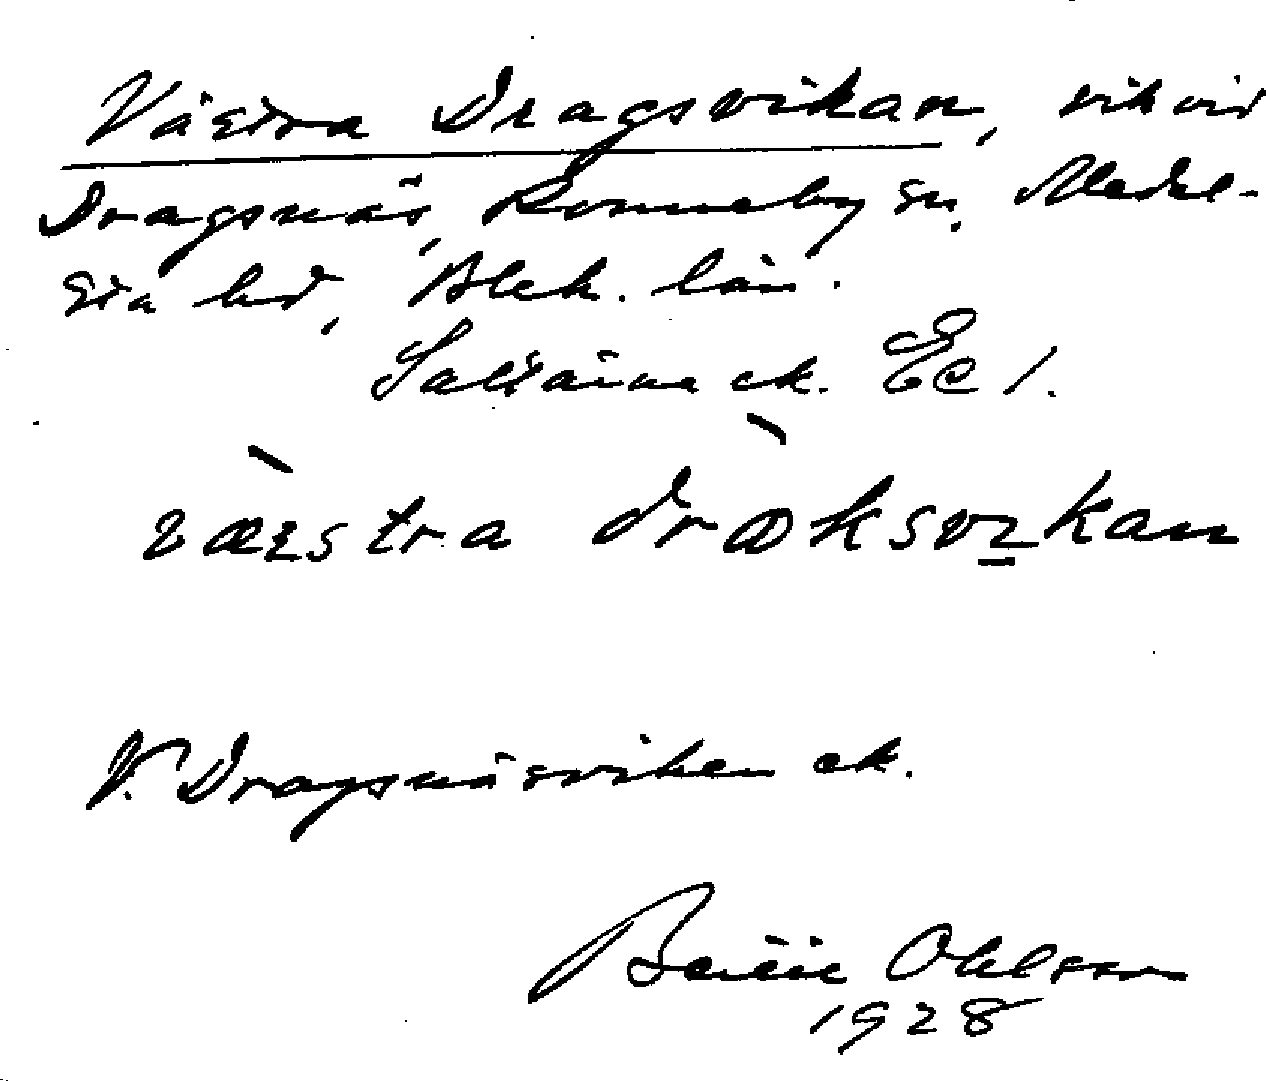 Västra Dragsvikan, vik vid
Dragsnäs, Ronneby sn, Medel-
sta hd, Blek. län.
Saltärna ek. Ec 1.
væstra draksvikan
V. Dragsnäsviken ek.
Bertil Ohlsson
1928